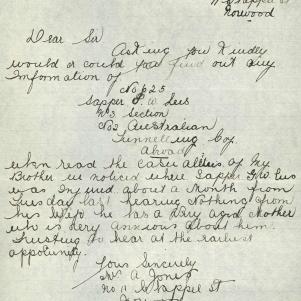 Chappel St
Norwood
Dear Sir
Asking you kindly
would or could you find out any
Information of
No 625
Sapper W Lees
No 3 Section
No 2 Australian
Tunnelling Coy
Abroad
when read the of My
Brother we noticed where Sapper Lees
was Injured about a Month from
Tuesday last hearing Nothing from
his Wife he has a Very aged Mother
who is Very anxious about him
Trusting to hear at the earliest
oppotunity.
Yours Sincerly
Mrs A. Jones
No 11 Chappel St
Norwood